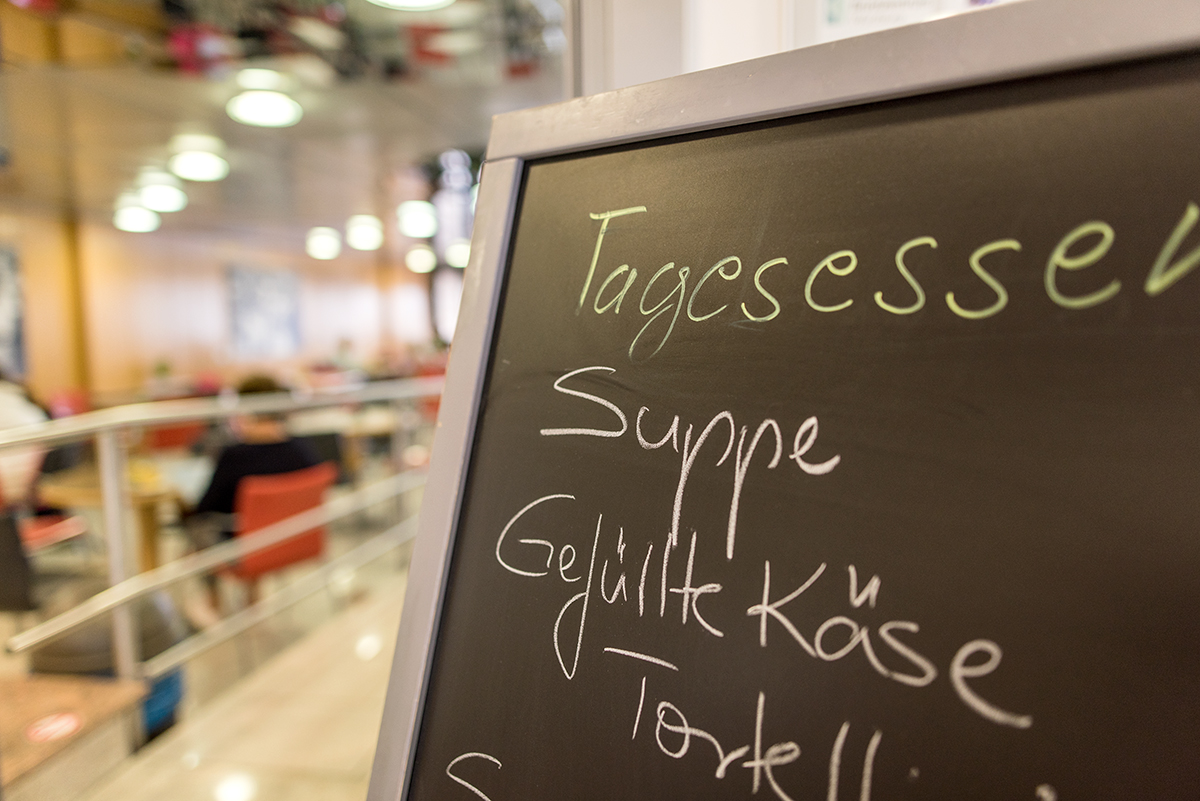 Tagesessen
Suppe
Gefüllte Käse
Tortelli